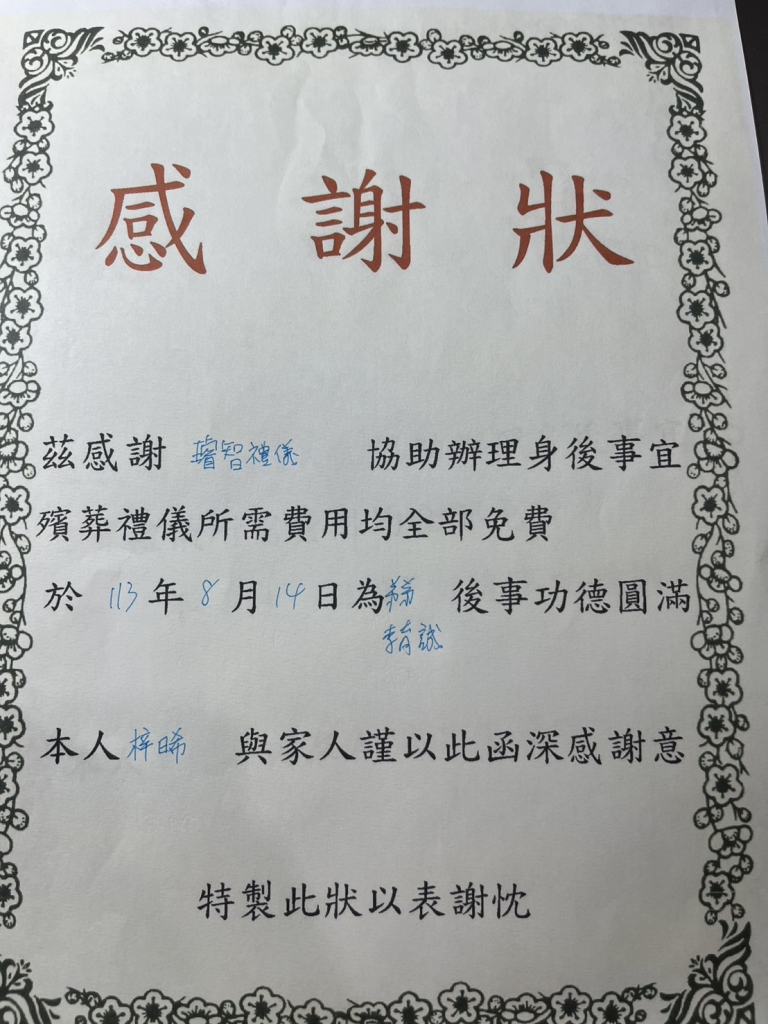 感謝狀
茲感謝 睿智禮儀 協助辦理身後事宜
殯葬禮儀所需費用均全部免費
於 113 年 8 月 14 日為 後事功德圓滿
李育誠
本人 梓晞 與家人謹以此函深感謝意
特製此狀以表謝忱